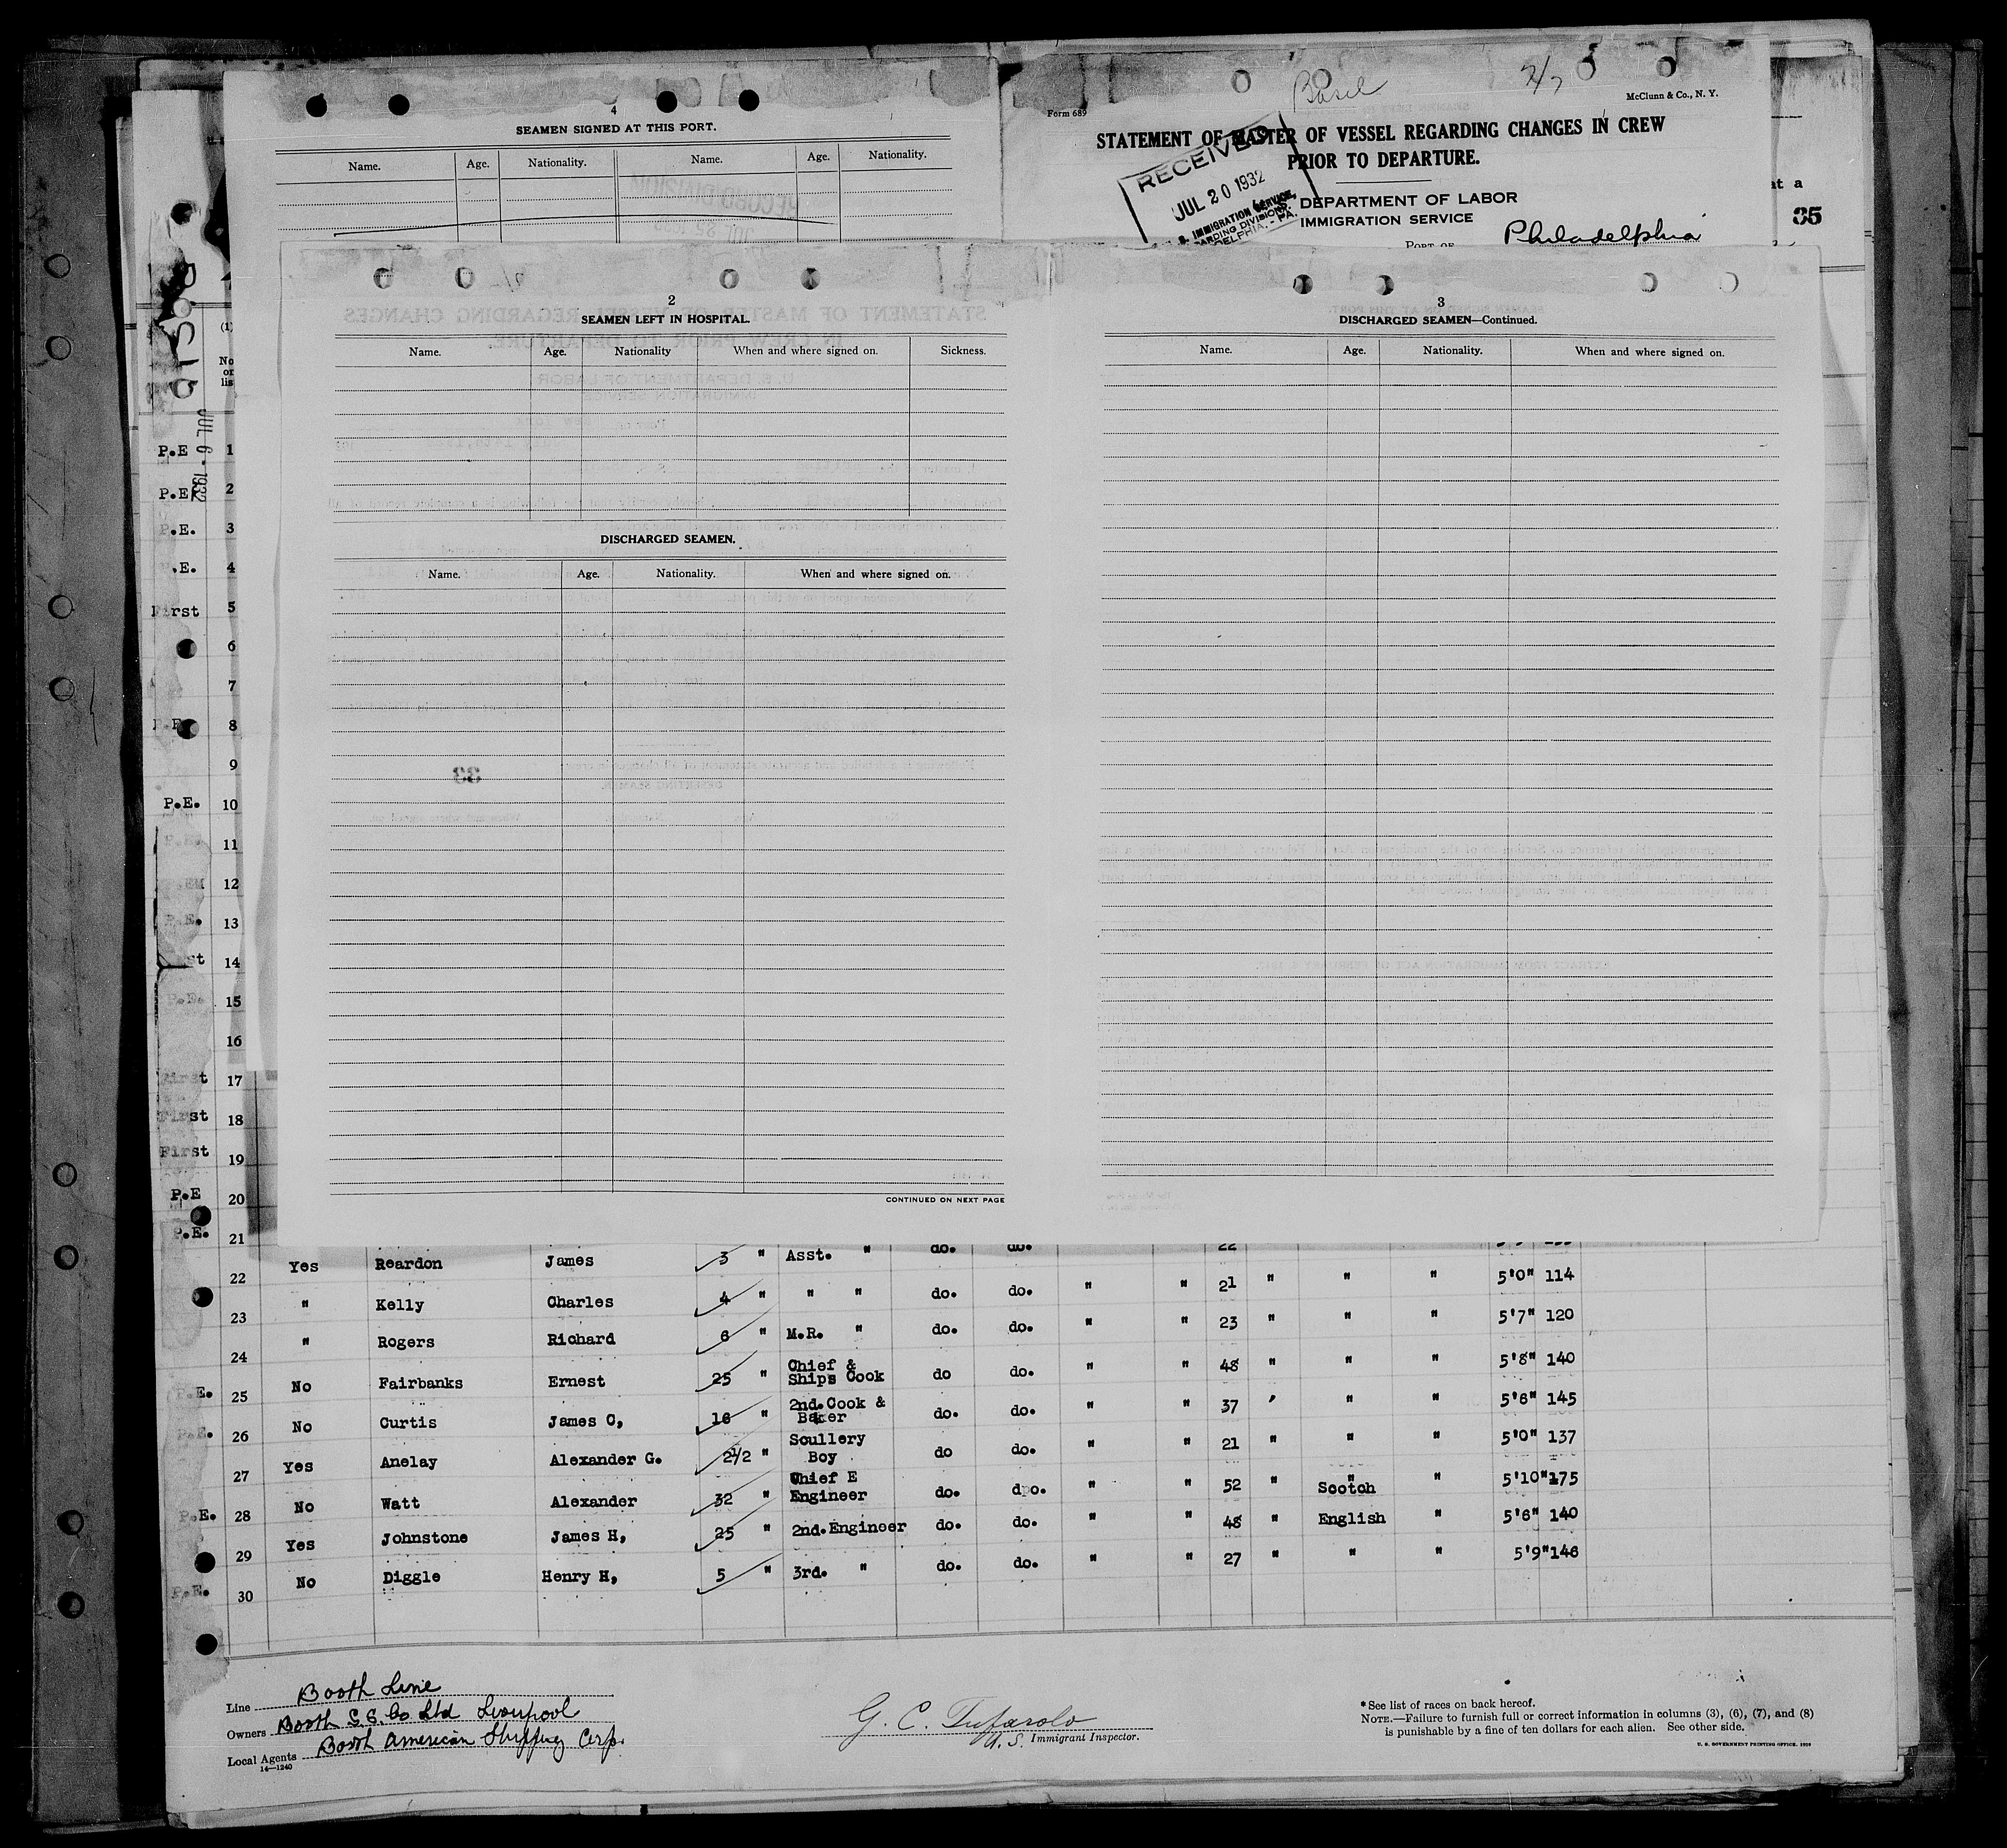 4
SEAMEN SIGNED AT THIS PORT.
Name. Age. Nationality. Name. Age. Nationality.
Basil
Form 689
McClunn & Co., N. Y.
STATEMENT OF MASTER OF VESSEL REGARDING CHANGES IN CREW
PRIOR TO DEPARTURE.
RECEIVED
JUL 20 1932
IMMIGRATION SERVICE,
DEPARTMENT OF LABOR
IMMIGRATION SERVICE
PORT OF Philadelphia
at a
35
2
SEAMEN LEFT IN HOSPITAL.
Name. Age. Nationality When and where signed on. Sickness.
DISCHARGED SEAMEN.
Name. Age. Nationality. When and where signed on.
33
CONTINUED ON NEXT PAGE
3
DISCHARGED SEAMEN—Continued.
Name. Age. Nationality. When and where signed on.
(1)
No
on
lis
JUL 6 - 1932
P.E 1
P.E 2
P.E. 3
.E. 4
First 5
6
7
8
9
P.E. 10
11
12
P.E. 13
st 14
P.E. 15
16
First 17
First 18
First 19
P.E 20
P.E. 21
22 Yes Reardon James 3 " Asst. " do. do. 22
23 " Kelly Charles 4 " " " do. do. " " 21 " " " 5'0" 114
24 " Rogers Richard 6 " M.R. " do. do. " " 23 " " " 5'7" 120
P.E. 25 No Fairbanks Ernest 25 " Chief & Ships Cook do do. " " 48 " " " 5'8" 140
P.E. 26 No Curtis James C, 16 " 2nd. Cook & Baker do. do. " " 37 ' " " 5'6" 145
27 Yes Anelay Alexander G. 2½ " Scullery Boy do do. " " 21 " " " 5'0" 137
P.E. 28 No Watt Alexander 32 " Chief E Engineer do. dpo. " " 52 " " Scotch " 5'10" 175
29 Yes Johnstone James H, 25 " 2nd. Engineer do. do. " " 48 " English " 5'6" 140
P.E. 30 No Diggle Henry H, 5 " 3rd. " do. do. " " 27 " " " 5'9" 146
Line Booth Line
Owners Booth S.S. Co. Ltd Liverpool
Local Agents Booth American Shipping Corp.
14—1240
G. C. Tufarolo
U. S. Immigrant Inspector.
* See list of races on back hereof.
NOTE.—Failure to furnish full or correct information in columns (3), (6), (7), and (8)
is punishable by a fine of ten dollars for each alien. See other side.
U. S. GOVERNMENT PRINTING OFFICE. 1928